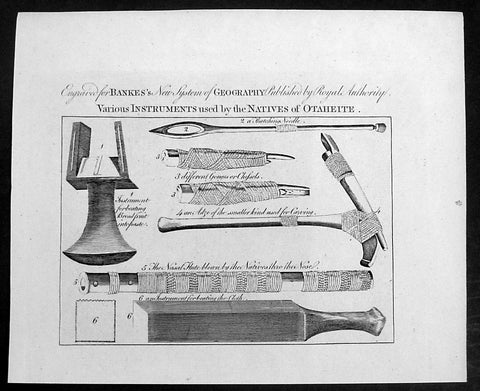 Engraved for BANKES's New System of GEOGRAPHY Published by Royal Authority.
Various INSTRUMENTS used by the NATIVES of OTAHEITE.
2 a Thatching Needle.
2
3
3 different Gouges or Chissels.
3
1
1
Instrument
for beating
Bread fruit
into paste.
4 an Adze of the smaller kind used for Carving.
4
5 The Nasal Flute blown by the Natives thro' the Nose.
5
6 an Instrument for beating the Cloth
6
6